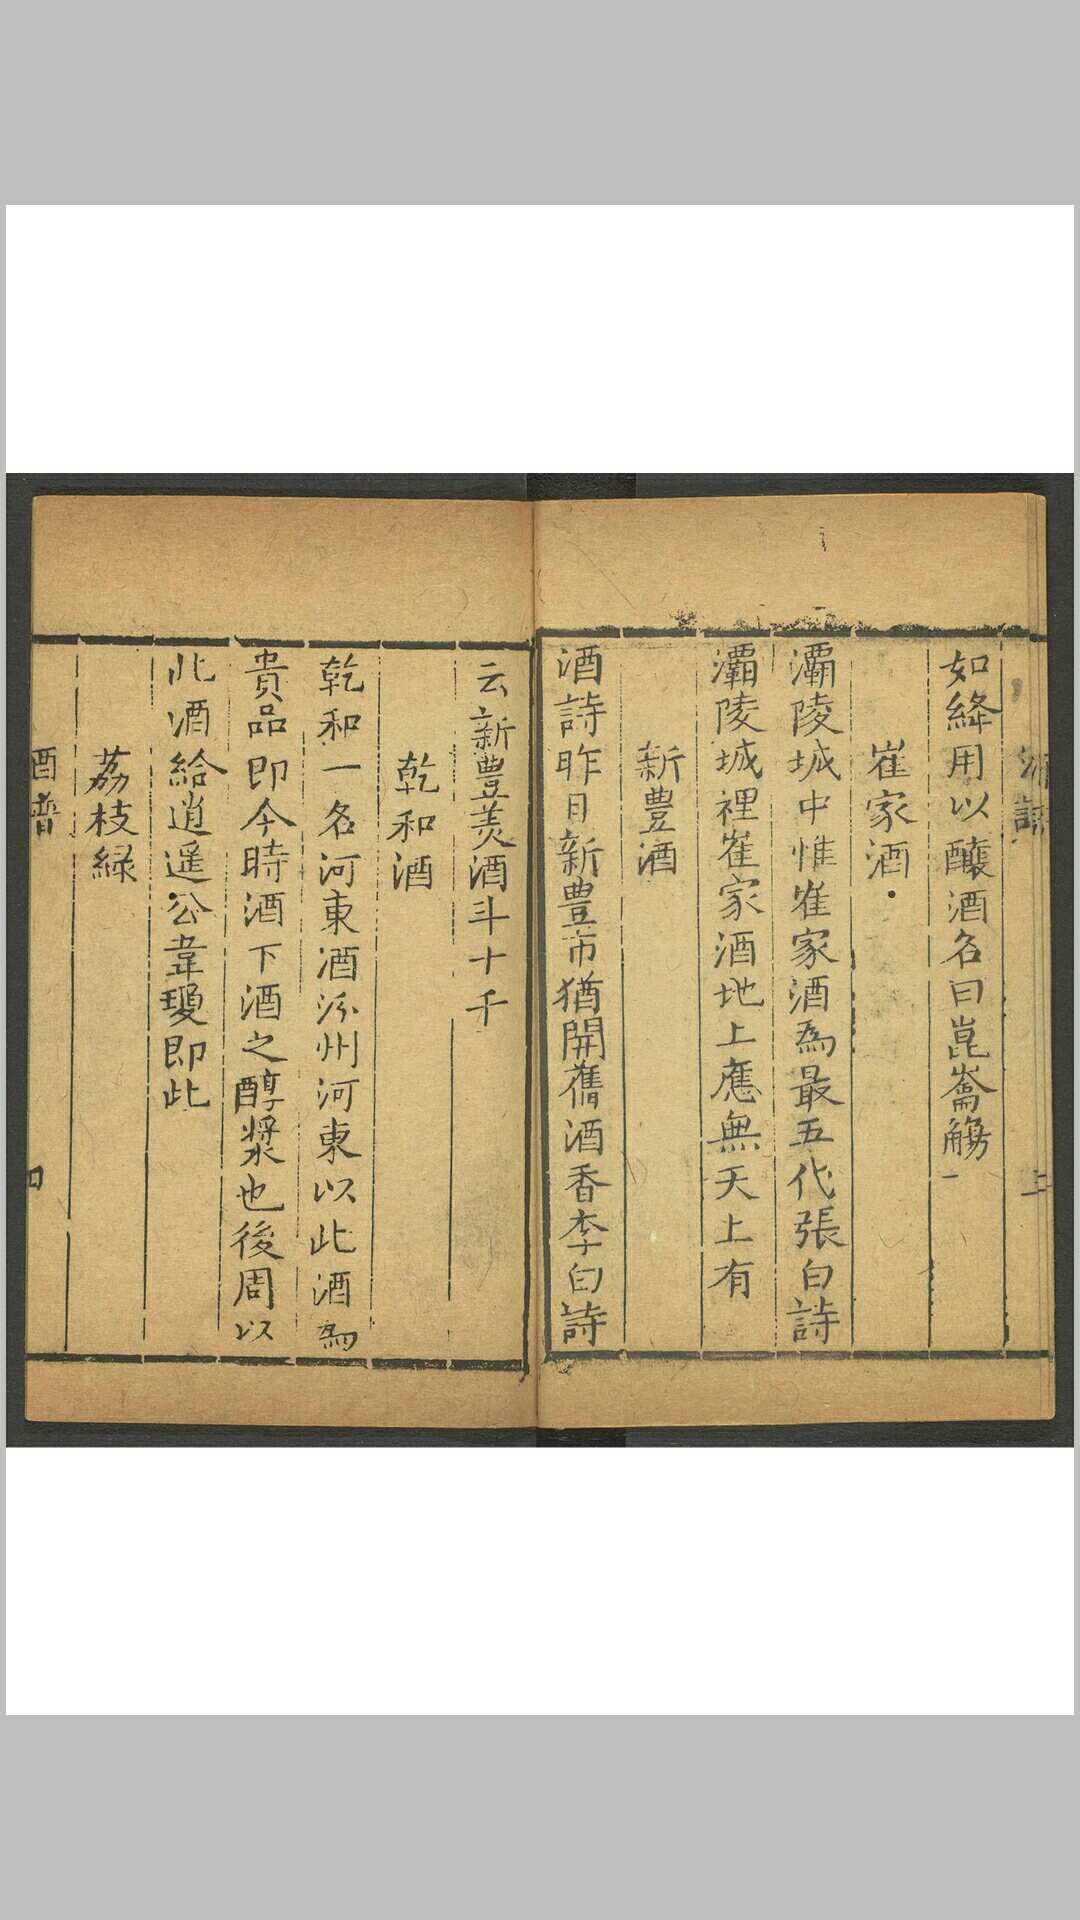 如絳用以釀酒名曰崑崙觴
崔家酒
灞陵城中惟崔家酒為最五代張白詩
灞陵城裡崔家酒地上應無天上有
新豊酒
酒詩昨日新豊市猶開舊酒香李白詩
云新豊羙酒斗十千
乾和酒
乾和一名河東酒汾州河東以此酒為
貴品即今時酒下酒之醇漿也後周以
此酒給逍遥公韋瓊即此
荔枝緑
酒譜